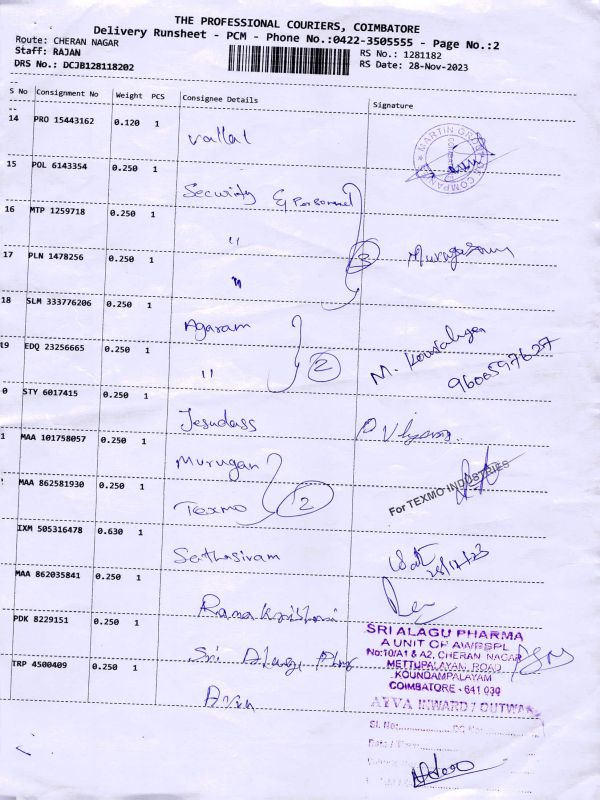 THE PROFESSIONAL COURIERS, COIMBATORE
Delivery Runsheet - PCM - Phone No.:0422-3505555 - Page No.:2
Route: CHERAN NAGAR
Staff: RAJAN
DRS No.: DCJB128118202
RS No.: 1281182
RS Date: 28-Nov-2023
S No Consignment No Weight PCS Consignee Details Signature
14 PRO 15443162 0.120 1 Vallal
MARTIN GROUP OF COMPANIES
15 POL 6143354 0.250 1 Security & Personnel
16 MTP 1259718 0.250 1 "
3 Murugesan
17 PLN 1478256 0.250 1 "
18 SLM 333776206 0.250 1 Agaram
19 EDQ 23256665 0.250 1 " 2
M. Kowsalya
9600597627
0 STY 6017415 0.250 1 Jesudass
1 MAA 101758057 0.250 1 Murugan
MAA 862581930 0.250 1 Texmo 2
For TEXMO INDUSTRIES
IXM 505316478 0.630 1 Sathasivam
28/11/23
MAA 862035841 0.250 1 Ramakrishnan
PDK 8229151 0.250 1 Sri Alagu
SRI ALAGU PHARMA
A UNIT OF AWBSPL
No:10/A1 & A2, CHERAN NAGAR
METTUPALAYAM ROAD
KOUNDAMPALAYAM
COIMBATORE - 641 030
TRP 4500409 0.250 1
AYVA INWARD / OUTWA
Sl. No:
Date / Time